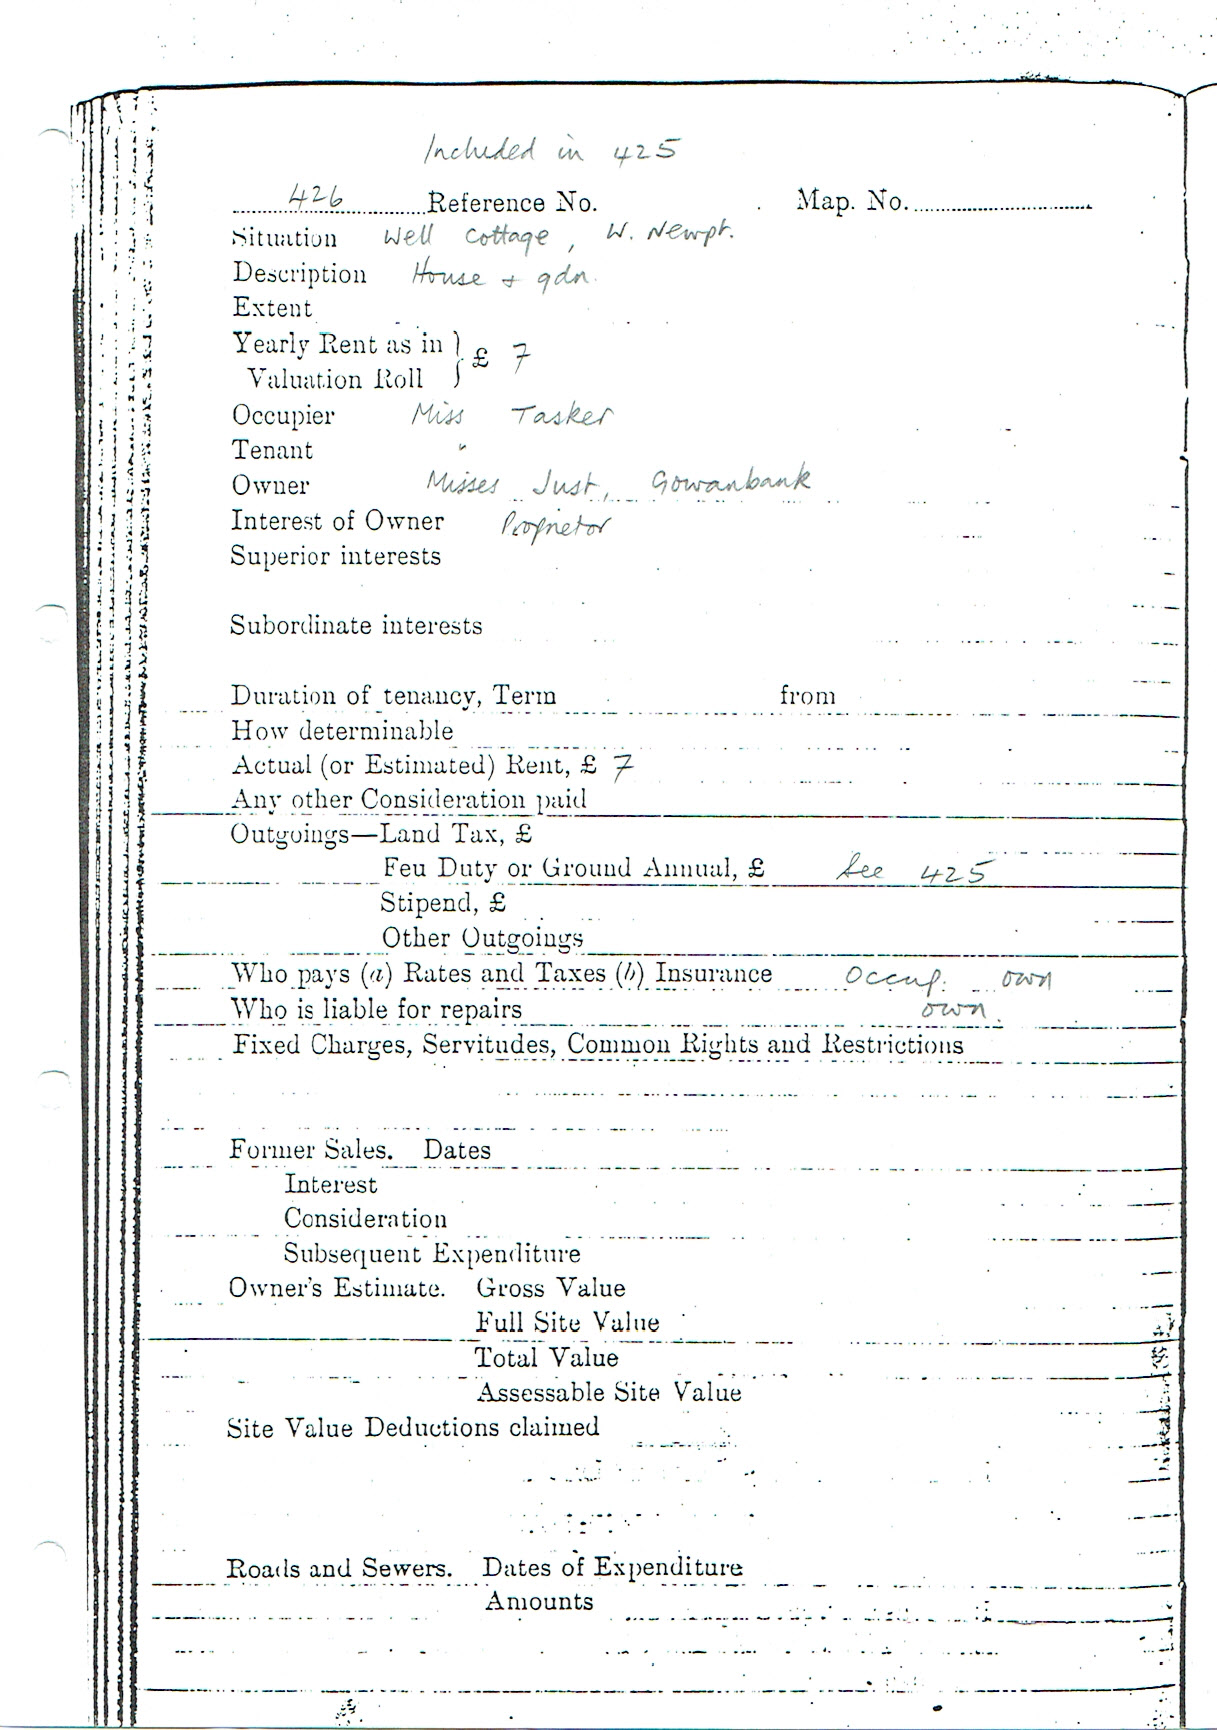 Included in 425
426 Reference No. Map. No.
Situation Well Cottage, W. Newpt.
Description House + gdn.
Extent
Yearly Rent as in
Valuation Roll } £ 7
Occupier Miss Tasker
Tenant "
Owner Misses Just, Gowanbank
Interest of Owner Proprietor
Superior interests
Subordinate interests
Duration of tenancy, Term from
How determinable
Actual (or Estimated) Rent, £ 7
Any other Consideration paid
Outgoings—Land Tax, £
Feu Duty or Ground Annual, £ See 425
Stipend, £
Other Outgoings
Who pays (a) Rates and Taxes (b) Insurance Occup. own
Who is liable for repairs own.
Fixed Charges, Servitudes, Common Rights and Restrictions
Former Sales. Dates
Interest
Consideration
Subsequent Expenditure
Owner's Estimate. Gross Value
Full Site Value
Total Value
Assessable Site Value
Site Value Deductions claimed
Roads and Sewers. Dates of Expenditure
Amounts